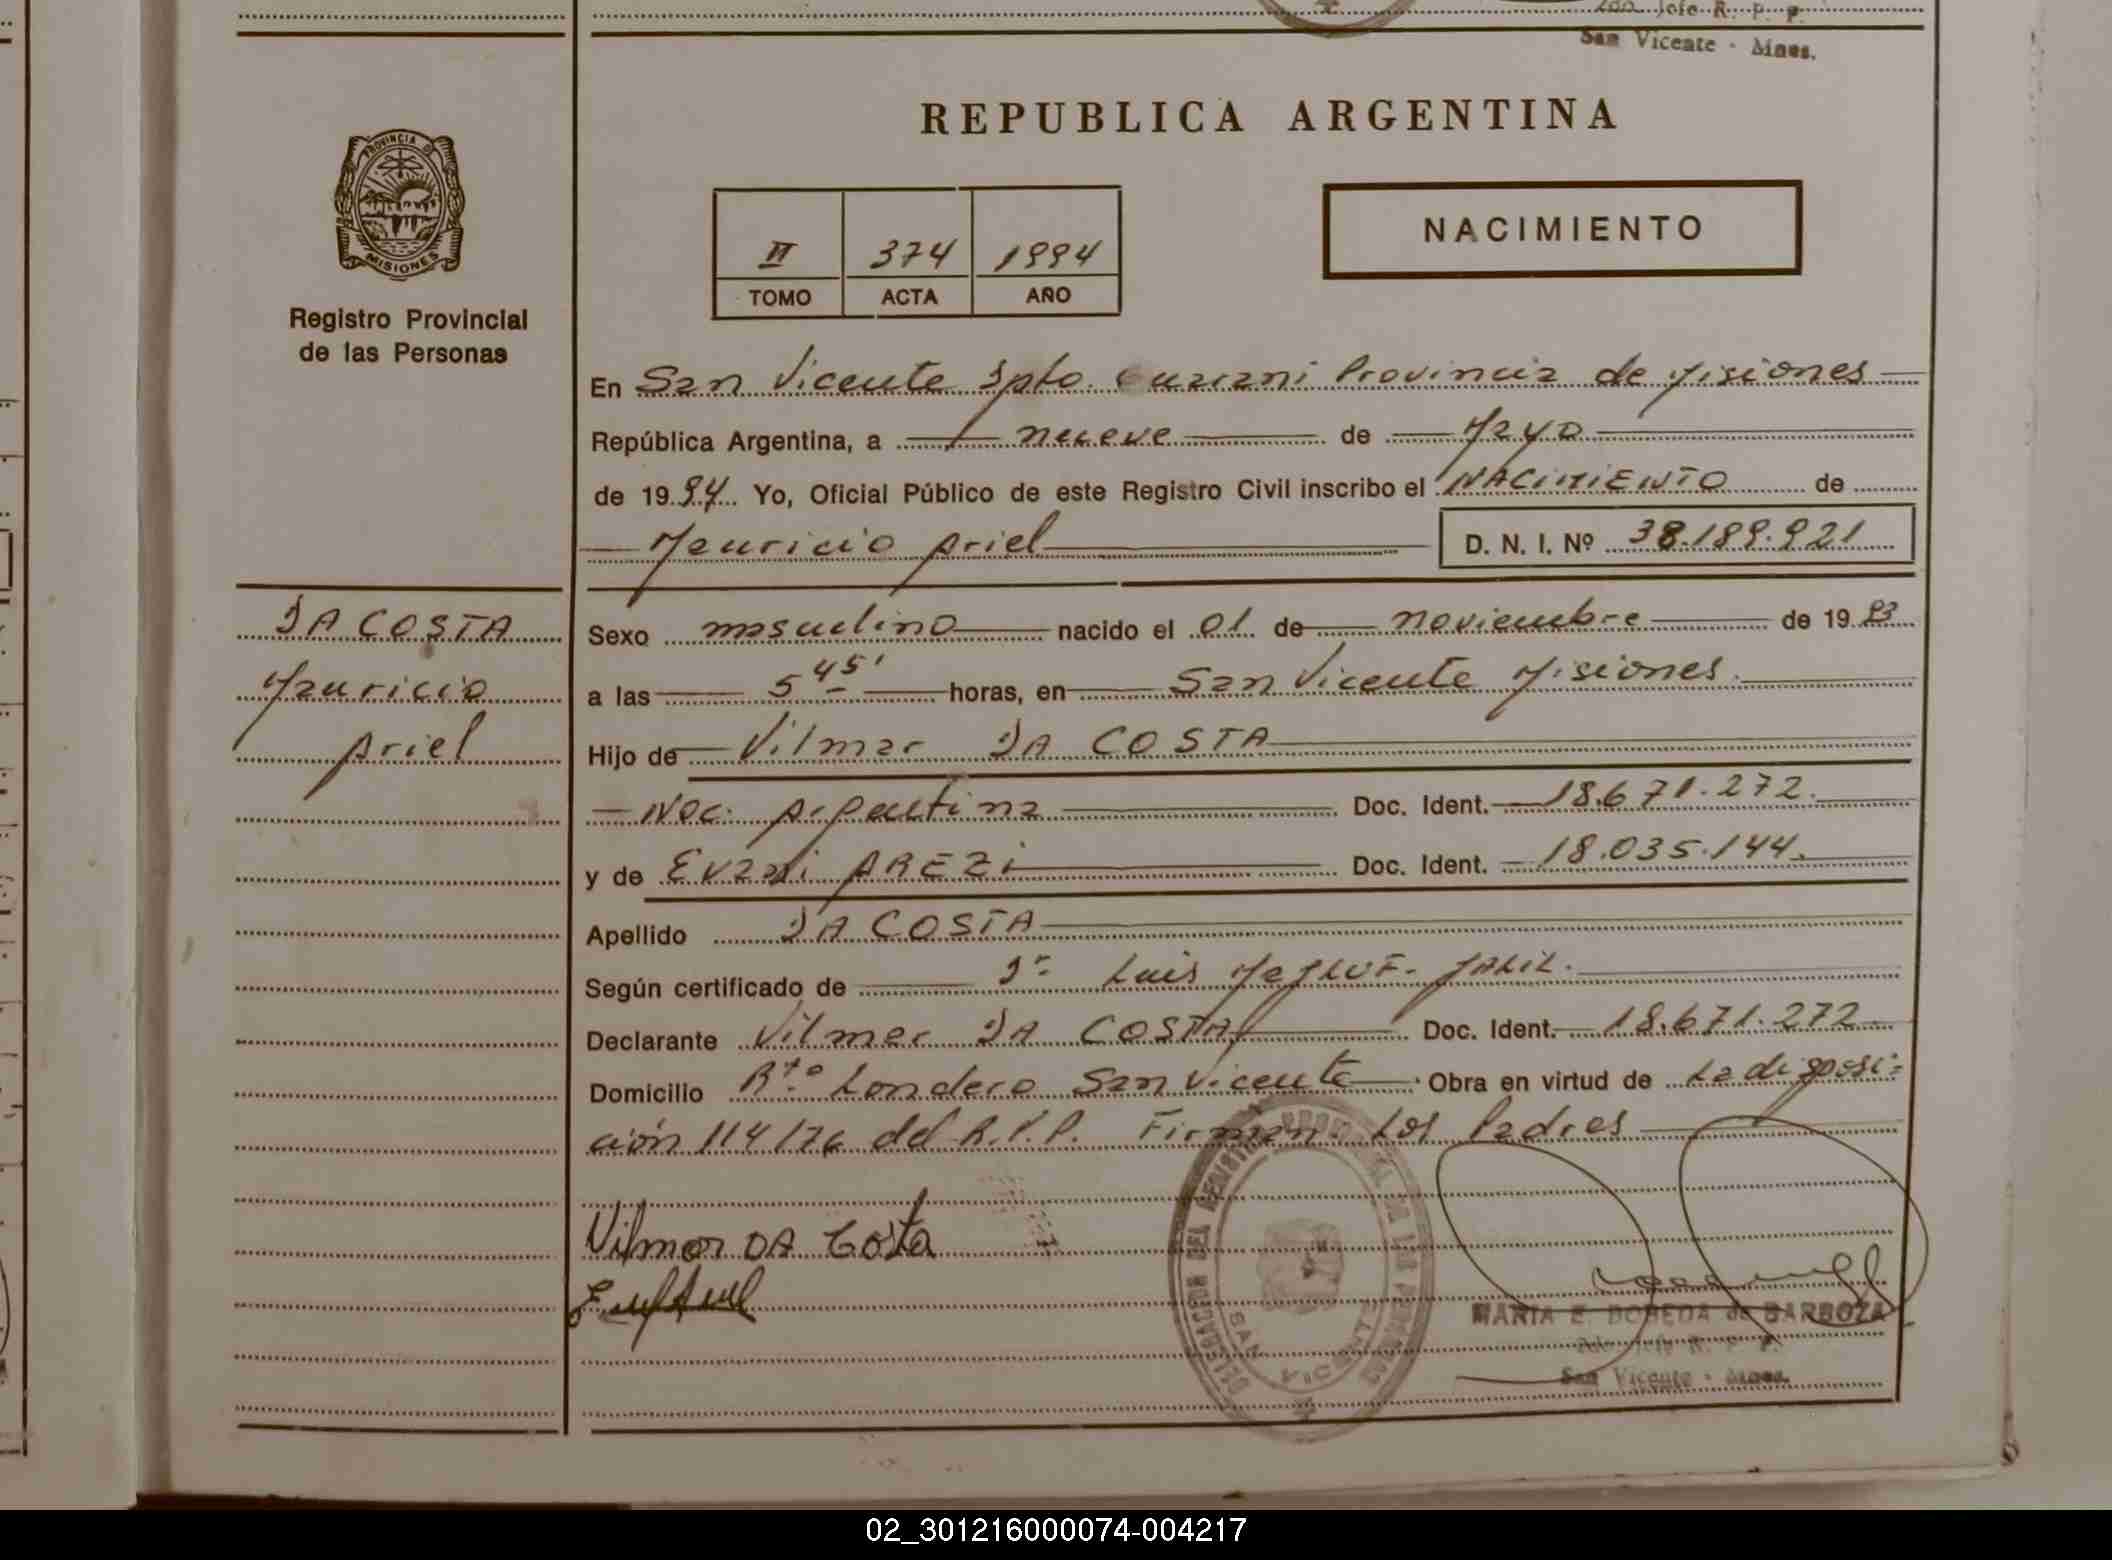 San Jose R. P. P.
San Vicente - Mnes.
REPUBLICA ARGENTINA
PROVINCIA DE
MISIONES
Registro Provincial
de las Personas
II 374 1994
TOMO ACTA AÑO
NACIMIENTO
En San Vicente Dpto. Guarani Provincia de Misiones
República Argentina, a nueve de Mayo
de 1994 Yo, Oficial Público de este Registro Civil inscribo el NACIMIENTO de
Mauricio Ariel D. N. I. Nº 38.189.921
DA COSTA
Mauricio
Ariel
Sexo masculino nacido el 01 de noviembre de 1993
a las 5 45' horas, en San Vicente Misiones.
Hijo de Vilmar DA COSTA
Nac. Argentina Doc. Ident. 18.671.272.
y de Evani AREZI Doc. Ident. 18.035.144.
Apellido DA COSTA
Según certificado de Dr. Luis JALIL.
Declarante Vilmar DA COSTA Doc. Ident. 18.671.272.
Domicilio Bto. Londero San Vicente. Obra en virtud de La disposi-
ción 114/76 del R.P.P. Firman Los Padres
Vilmar DA Costa
DELEGACION DEL REGISTRO PROVINCIAL DE LAS PERSONAS
SAN VICENTE
MARIA E. BOBEDA de BARBOZA
R. P. P.
San Vicente - Mnes.
02_301216000074-004217